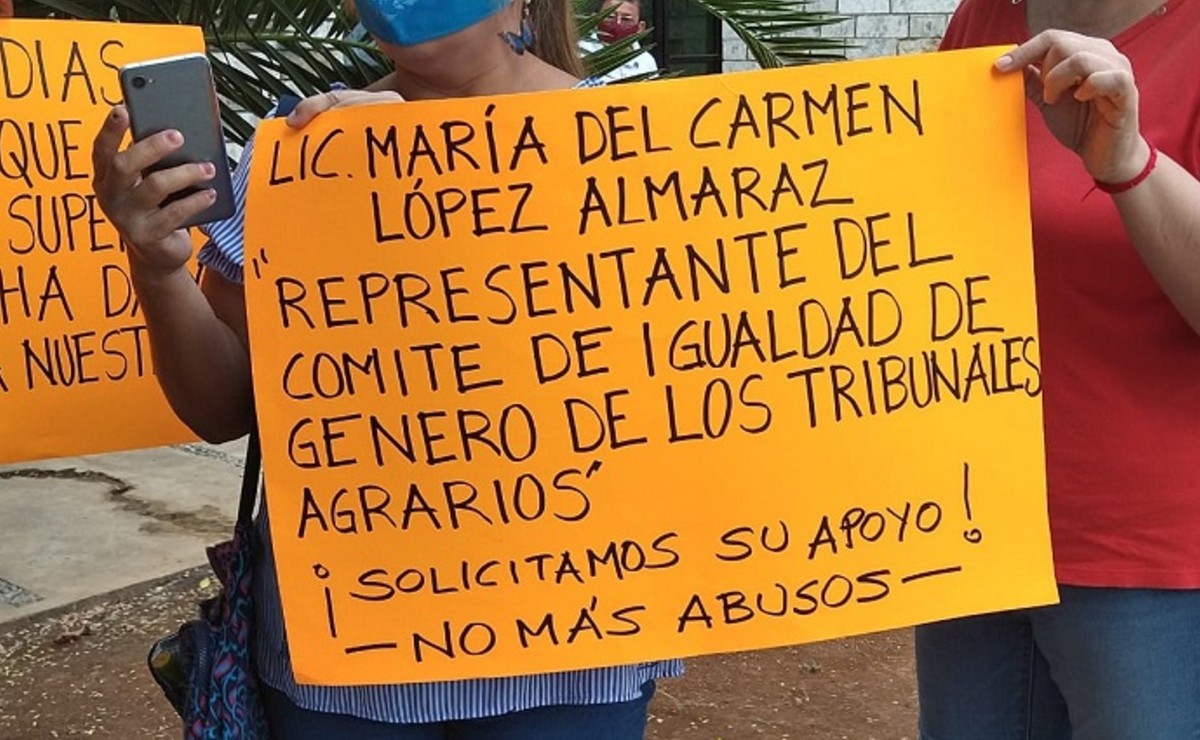 DIAS
QUE
SUPE
HA D
NUEST
LIC. MARÍA DEL CARMEN
LÓPEZ ALMARAZ
"REPRESENTANTE DEL
COMITE DE IGUALDAD DE
GENERO DE LOS TRIBUNALES
AGRARIOS"
¡SOLICITAMOS SU APOYO!
— NO MÁS ABUSOS —